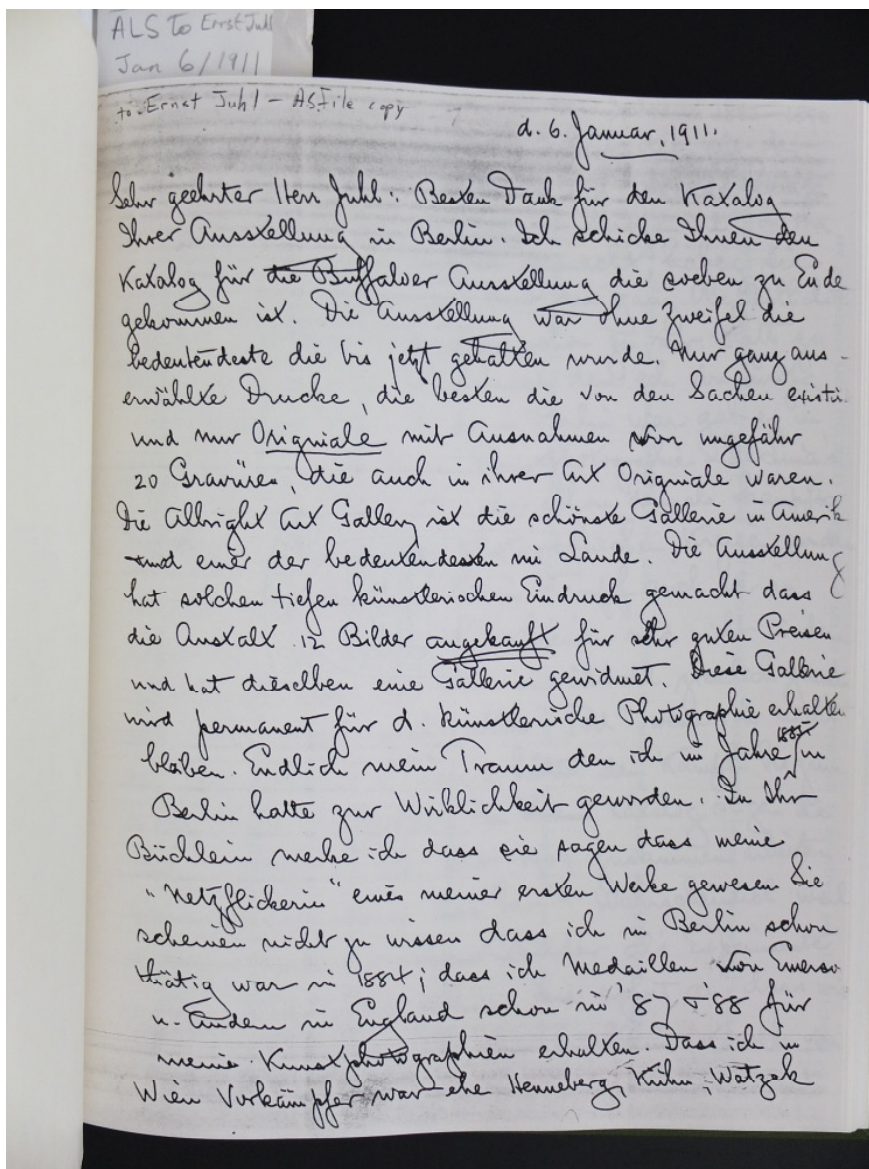 ALS To Ernst Juhl
Jan 6/1911
to: Ernst Juhl - AS File copy
d. 6. Januar, 1911.
Sehr geehrter Herr Juhl: Besten Dank für den Katalog
Ihrer Ausstellung in Berlin. Ich schicke Ihnen den
Katalog für die Buffaloer Ausstellung die soeben zu Ende
gekommen ist. Die Ausstellung war ohne Zweifel die
bedeutendeste die bis jetzt gehalten wurde. Nur ganz aus-
erwählte Drucke, die besten die von den Sachen existi
und nur Originale mit Ausnahmen von ungefähr
20 Gravüren, die auch in ihrer Art Originale waren.
Die Albright Art Gallery ist die schönste Gallerie in Amerik
und einer der bedeutendesten im Lande. Die Ausstellung
hat solchen tiefen künstlerischen Eindruck gemacht dass
die Anstalt 12 Bilder angekauft für sehr guten Preisen
und hat dieselben eine Gallerie gewidmet. Diese Gallerie
wird permanent für d. künstlerische Photographie erhalten
bleiben. Endlich mein Traum den ich im Jahre 1884 in
Berlin hatte zur Wirklichkeit geworden. In Ihr
Büchlein merke ich dass sie sagen dass meine
"Netzflickerin" eines meiner ersten Werke gewesen Sie
scheinen nicht zu wissen dass ich in Berlin schon
thätig war in 1884; dass ich Medaillen von Emerso
u. Andern in England schon in '87 & '88 für
meine Kunstphotographien erhalten. Dass ich in
Wien Vorkämpfer war ehe Henneberg, Kühn, Watzek